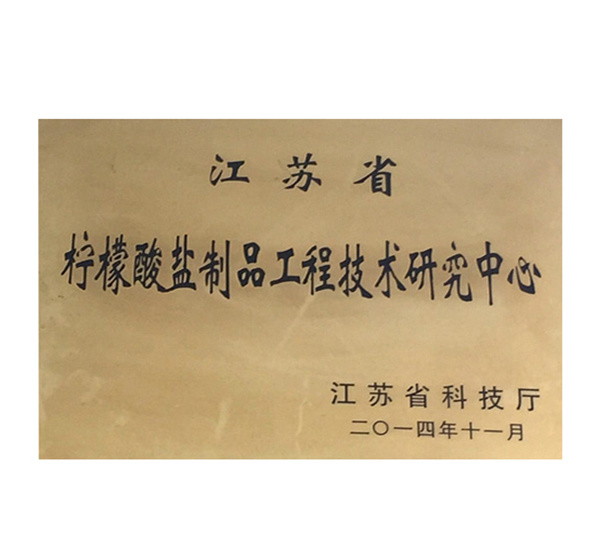 江苏省
柠檬酸盐制品工程技术研究中心
江苏省科技厅
二〇一四年十一月